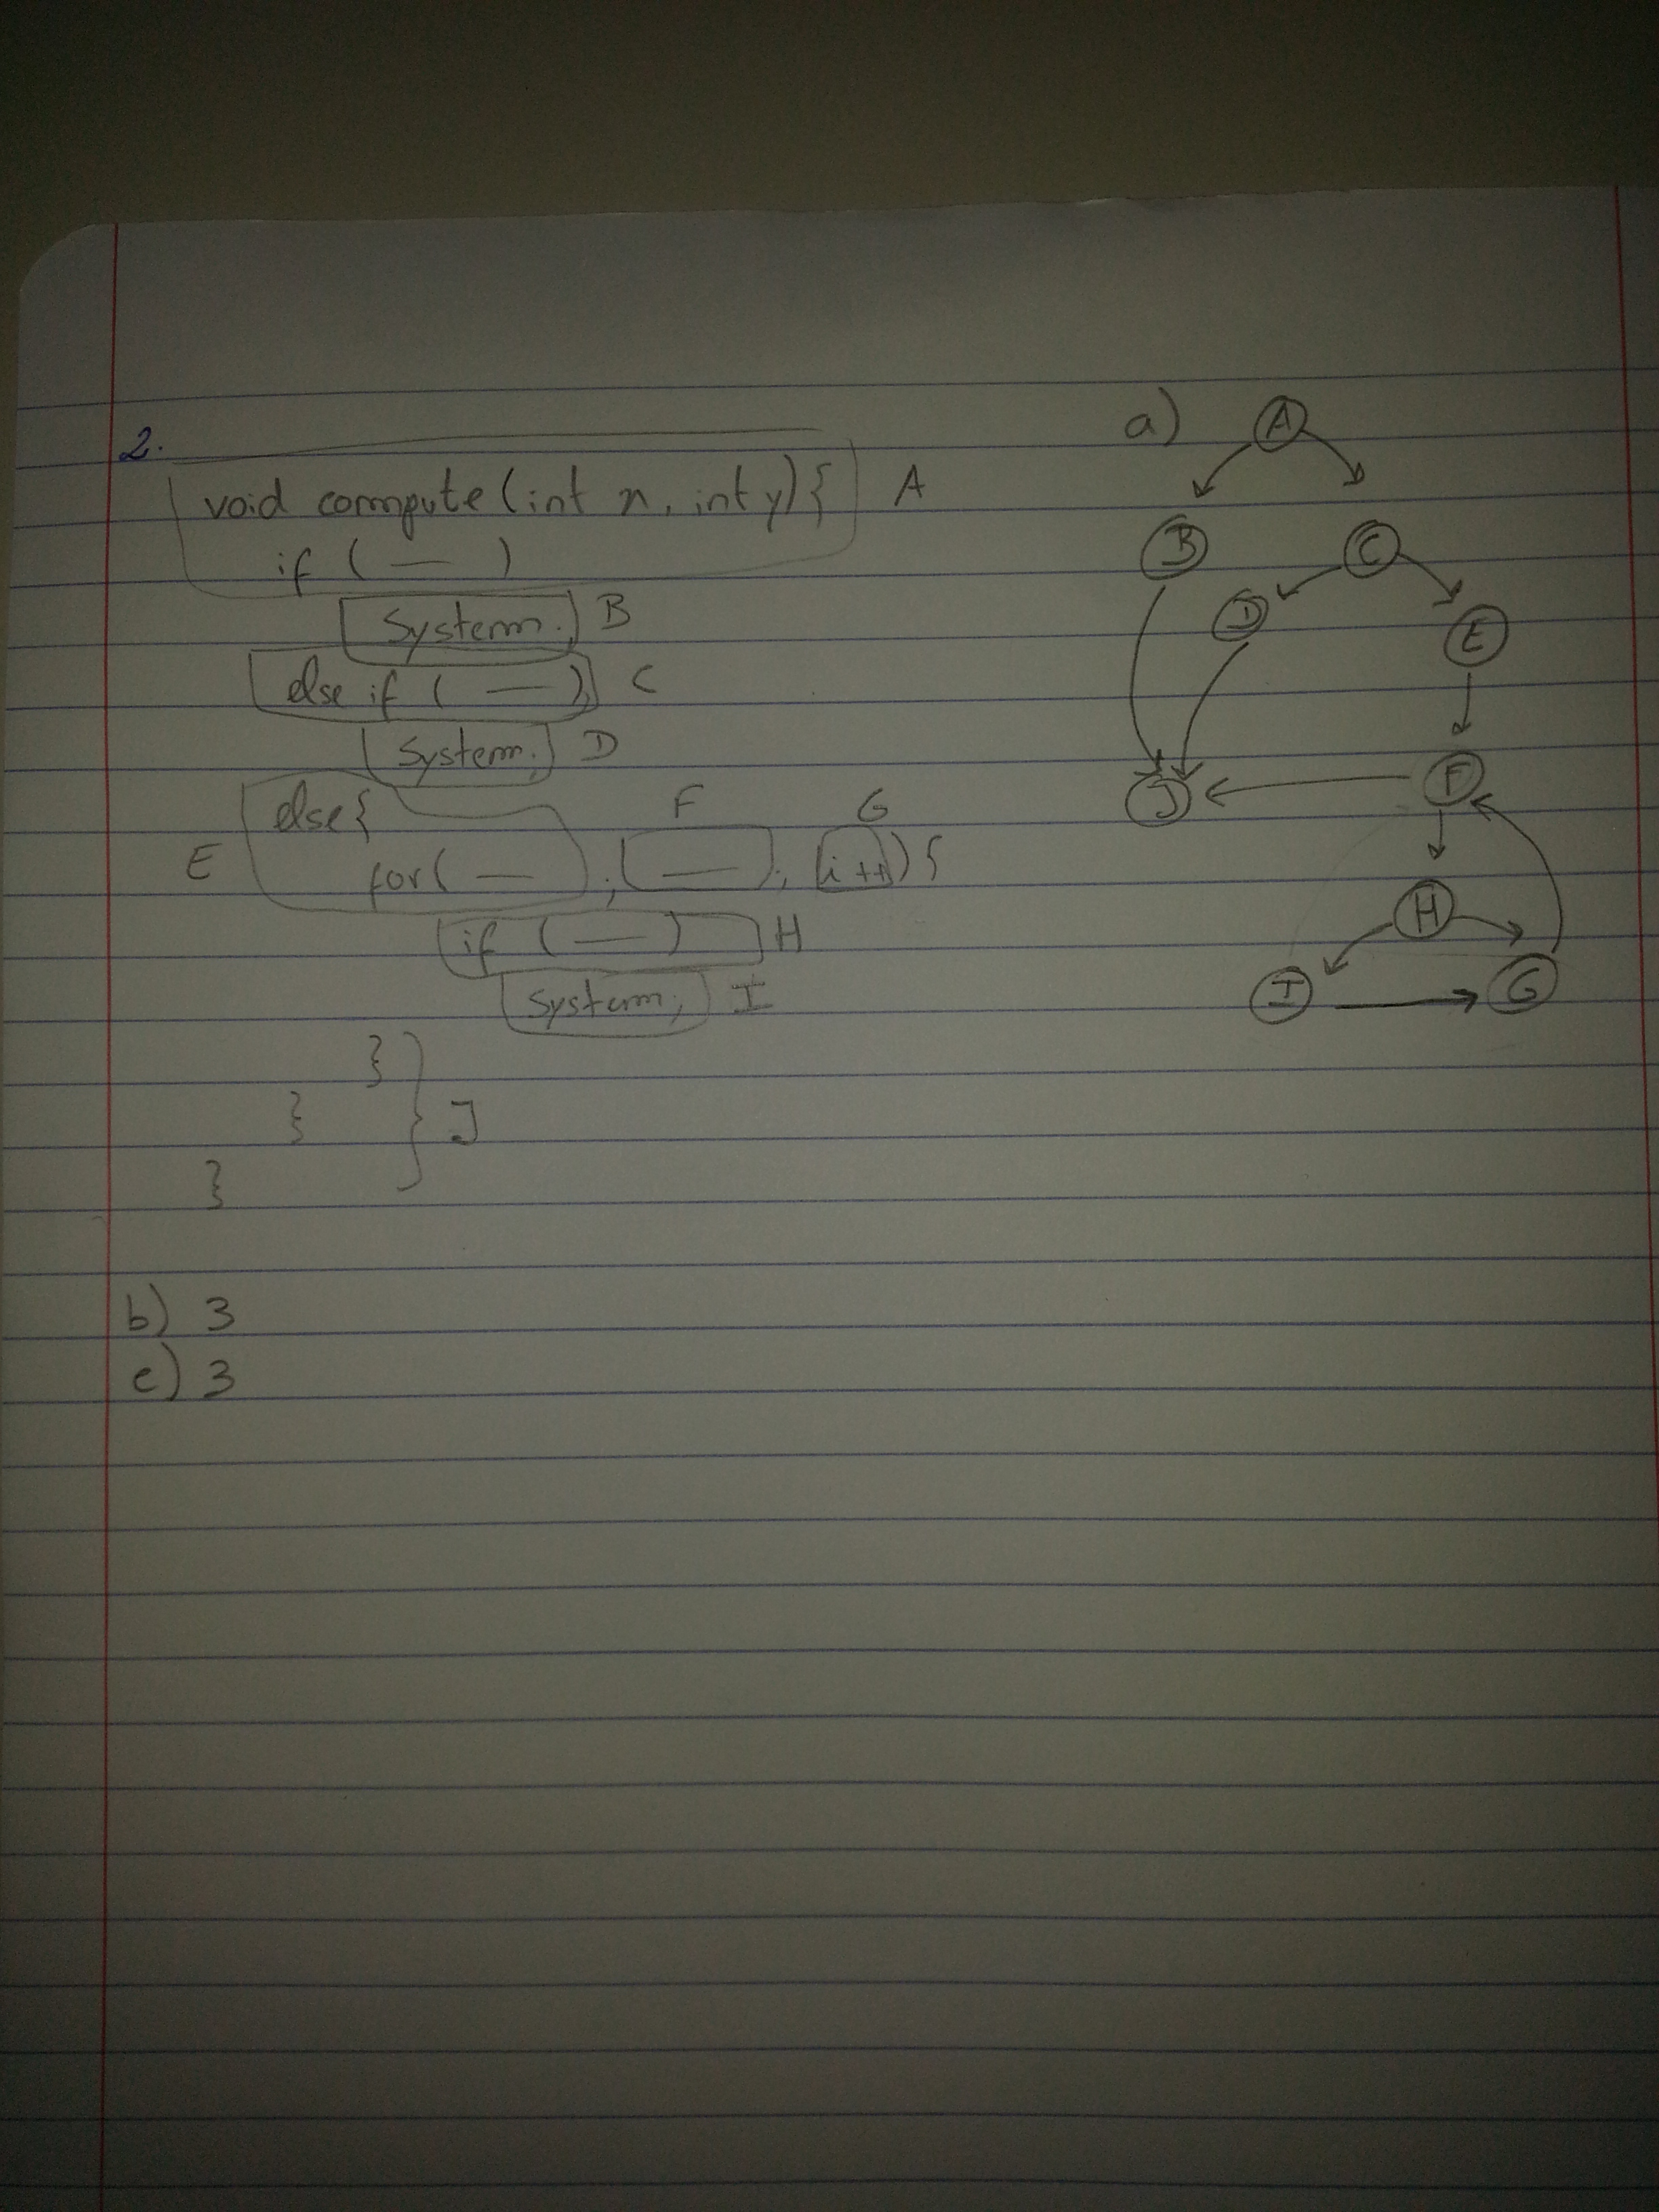 2.
void compute (int x, int y) { A
if ( — )
System. ; B
else if ( — ) C
System. ; D
else { F G
E for ( — ; — ; i++) {
if ( — ) H
System ; I
}
} } J
}
b) 3
c) 3
a) A
B C
D E
J F
H
I G